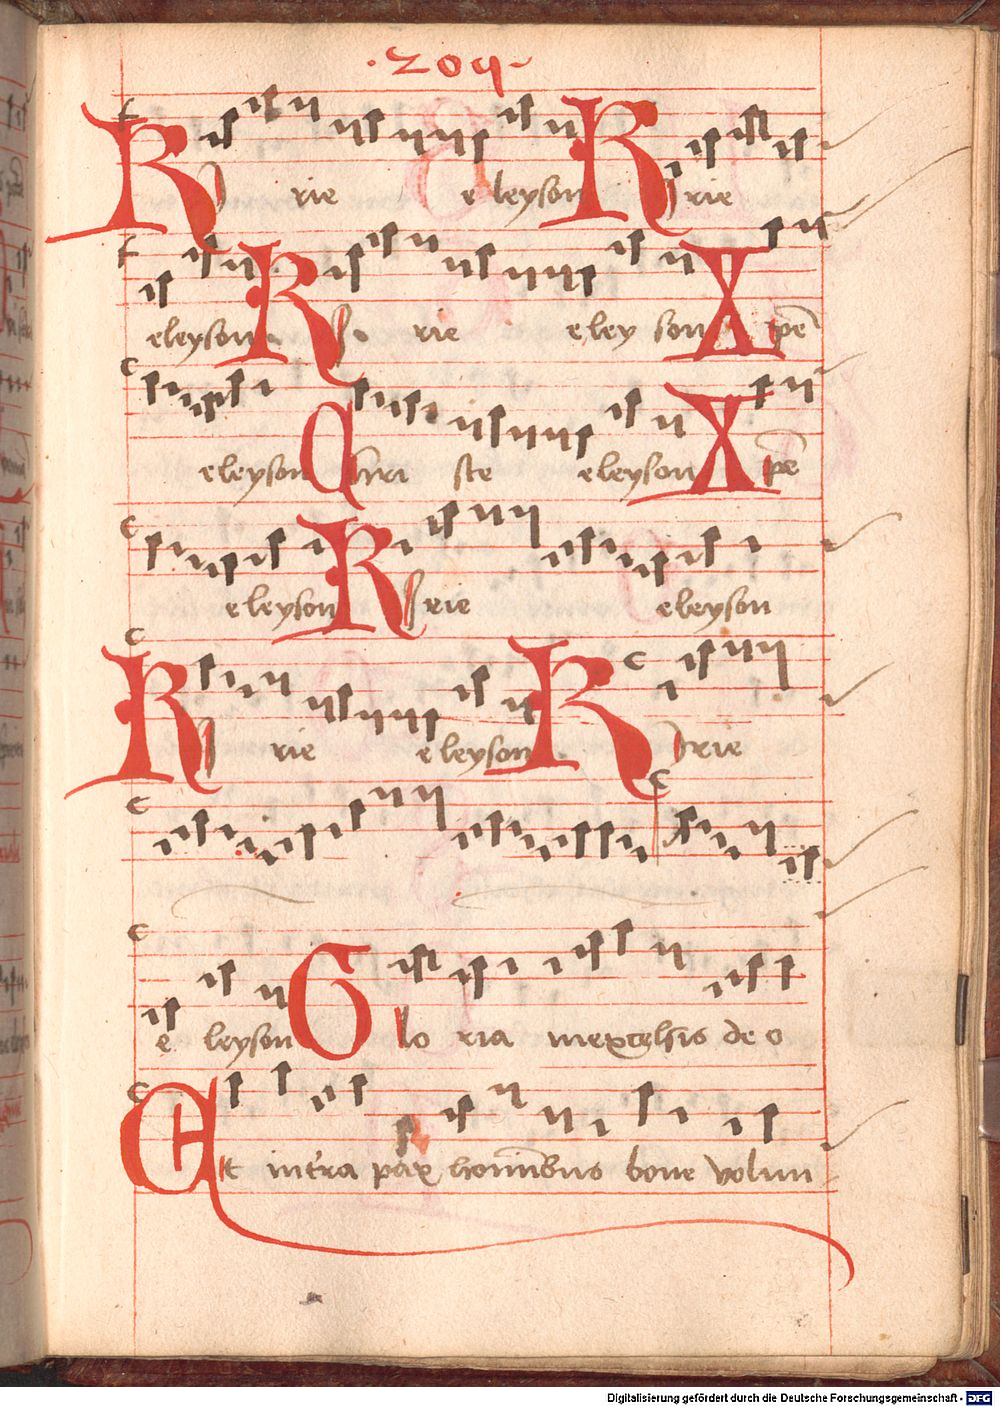 ·209·
Kyrie eleyson Kyrie
eleyson Ky. rie eley son Xpē
eleyson Chri ste eleyson Xpē
eleyson Kyrie eleyson
Kyrie eleyson Kyrie
e leyson Glo ria inexcelsis de o
Et inťra pax hominibus bone volun
Digitalisierung gefördert durch die Deutsche Forschungsgemeinschaft - DFG